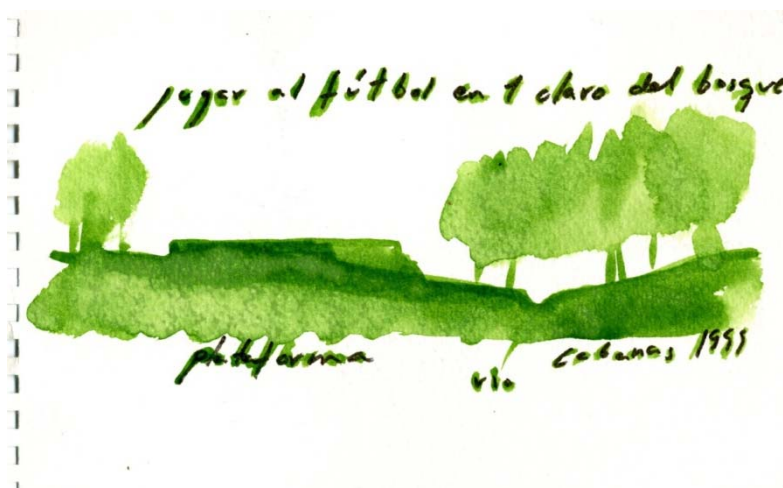 jugar al fútbol en 1 claro del bosque
plataforma
río
cabanas 1999